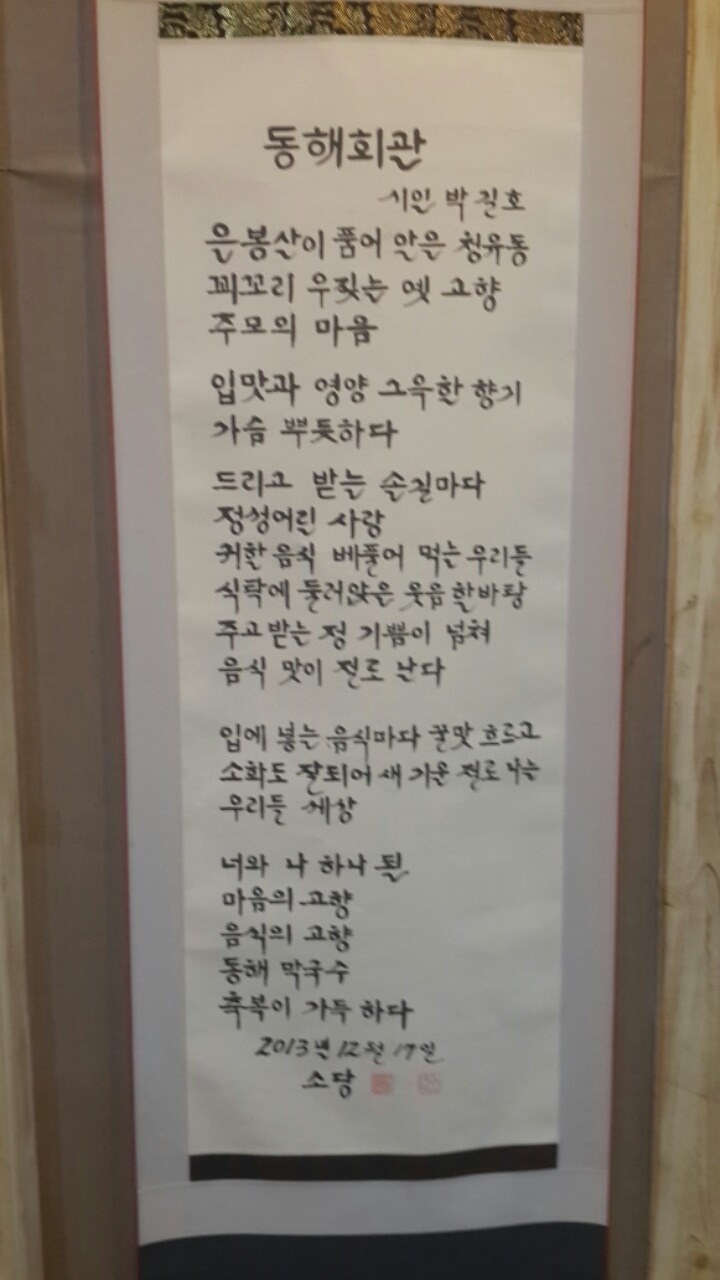 동해회관
시인 박길호
은봉산이 품어 안은 청유동
꾀꼬리 우짖는 옛 고향
주모의 마음
입맛과 영양 그윽한 향기
가슴 뿌듯하다
드리고 받는 손길마다
정성어린 사랑
귀한 음식 베풀어 먹는 우리들
식탁에 둘러앉은 웃음 한바탕
주고받는 정 기쁨이 넘쳐
음식 맛이 절로 난다
입에 넣는 음식마다 꿀맛 흐르고
소화도 잘되어 새 기운 절로 나는
우리들 세상
너와 나 하나 된
마음의 고향
음식의 고향
동해 막국수
축복이 가득 하다
2013년 12월 17일
소당